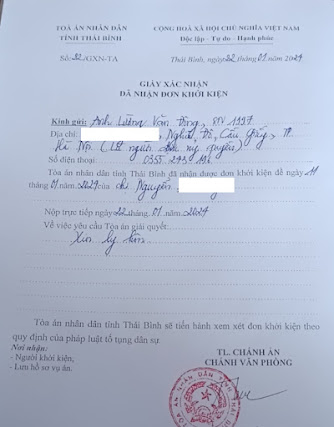 TOÀ ÁN NHÂN DÂN
TỈNH THÁI BÌNH
CỘNG HOÀ XÃ HỘI CHỦ NGHĨA VIỆT NAM
Độc lập - Tự do - Hạnh phúc
Số: 32/GXN-TA
Thái Bình, ngày 22 tháng 01 năm 2024
GIẤY XÁC NHẬN
ĐÃ NHẬN ĐƠN KHỞI KIỆN
Kính gửi: Anh Lương Văn Đông, SN 1997
Địa chỉ: Nghĩa Đô, Cầu Giấy, TP
Hà Nội (Là người uỷ quyền)
Số điện thoại: 0355 293
Toà án nhân dân tỉnh Thái Bình đã nhận được đơn khởi kiện đề ngày 11
tháng 01 năm 2024 của chị Nguyễn
Nộp trực tiếp ngày 22 tháng 01 năm 2024
Về việc yêu cầu Tòa án giải quyết:
Xin ly hôn
Tòa án nhân dân tỉnh Thái Bình sẽ tiến hành xem xét đơn khởi kiện theo
quy định của pháp luật tố tụng dân sự.
Nơi nhận:
- Người khởi kiện;
- Lưu hồ sơ vụ án.
TL. CHÁNH ÁN
CHÁNH VĂN PHÒNG